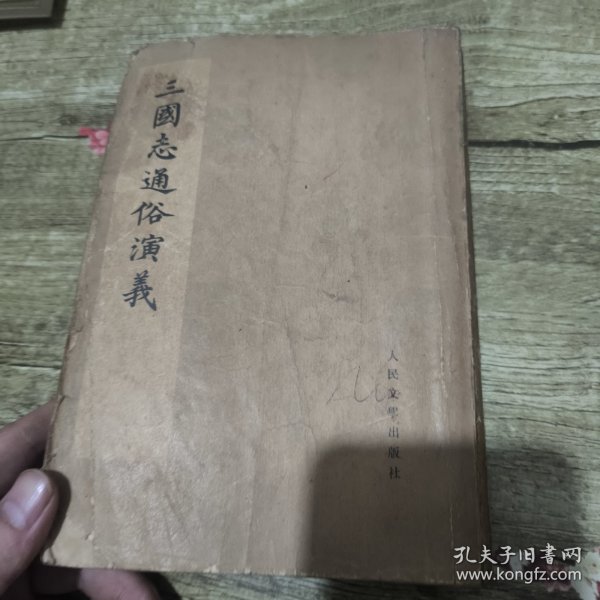 三國志通俗演義
人民文學出版社
孔夫子旧书网
www.kongfz.com